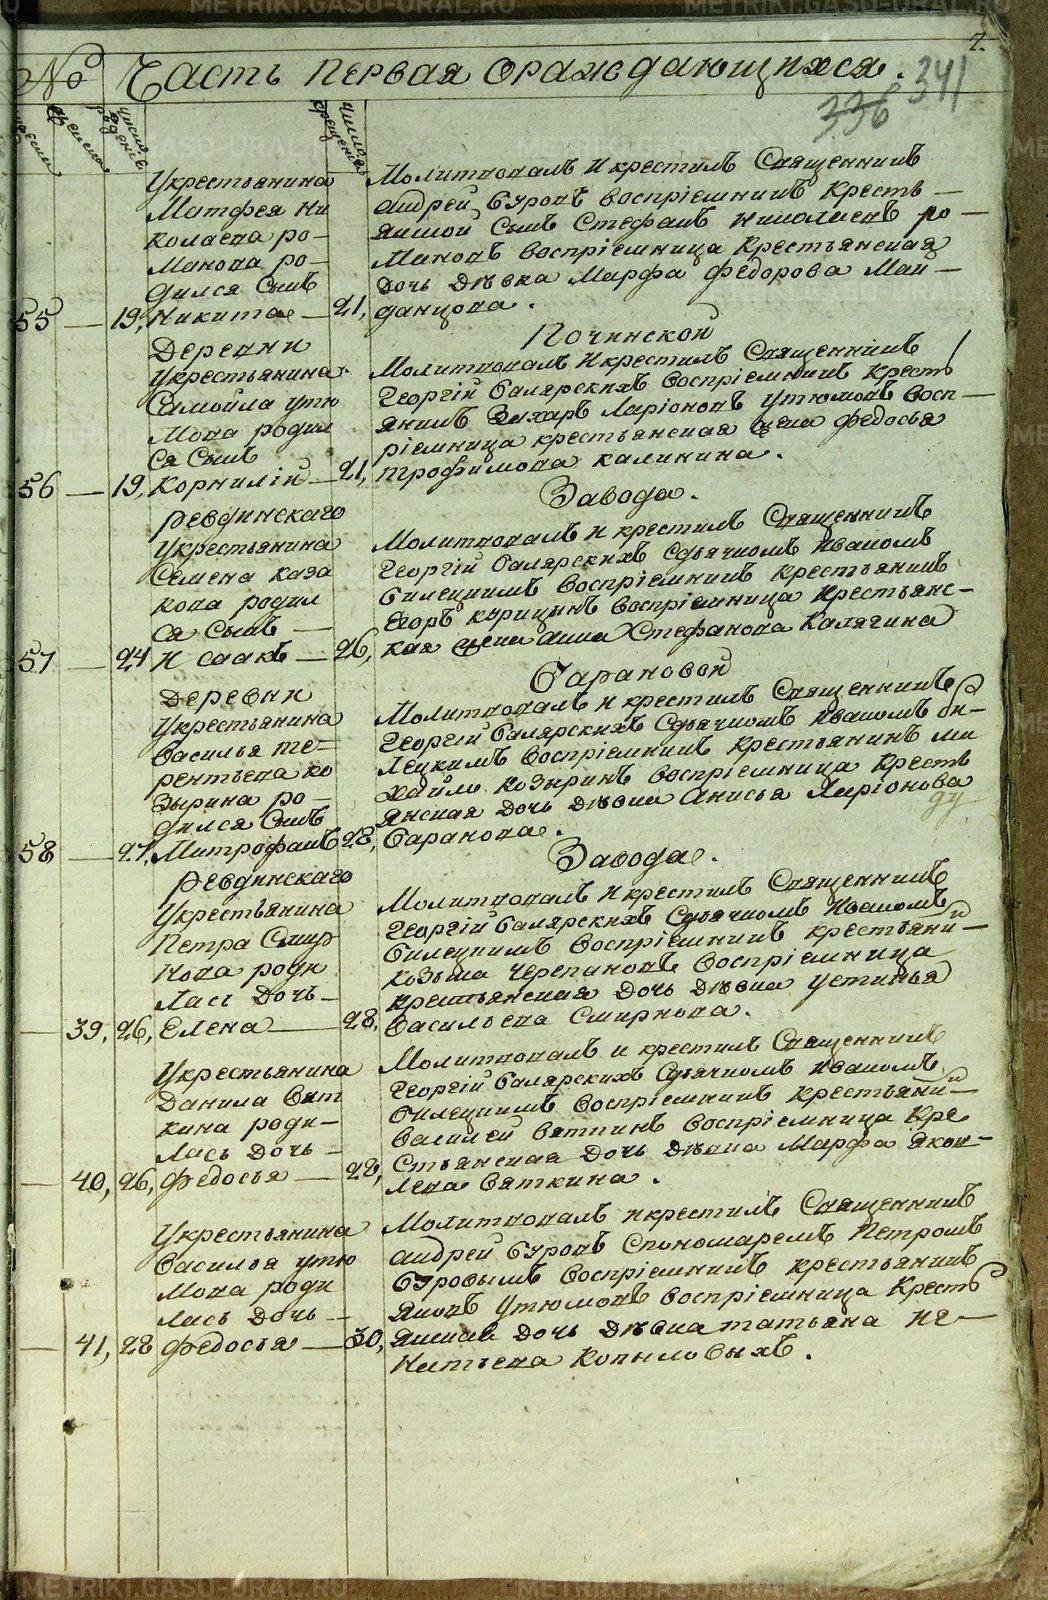 № Часть первая ораждающихся.
341
336
У крестьянина
Матфея Ни
колаева ро-
манова ро-
дился сынъ
55 — 19, Никита — 21,
Молитвовалъ и крестилъ Священникъ
Андрей Буровъ воспріемникъ кресть-
янской сынъ Стефанъ Николаевъ ро-
мановъ воспріемница крестьянская
дочь девка Марфа Федорова Май-
данцова.
Деревни Починской
У крестьянина
Самойла утю
мова родил
ся сынъ
56 — 19, Корнилій — 21,
Молитвовалъ и крестилъ Священникъ
Георгій Балярскихъ воспріемникъ кресть
янинъ Захаръ Ларіоновъ утюмовъ восп-
ріемница крестьянская жена Федосья
трофимова калинина.
Ревдинскаго Завода.
У крестьянина
Семена каза
кова родил
ся сынъ —
57 — 24 Исаакъ — 26,
Молитвовалъ и крестилъ Священникъ
Георгій Балярскихъ сдьячкомъ Иваномъ
Билецкимъ воспріемникъ крестьянинъ
Егоръ курицынъ воспріемница крестьянс-
кая жена анна Стефанова Калягина
Деревни Барановой
У крестьянина
Василья те-
рентьева ко
зырина ро-
дился сынъ
58 — 27, Митрофанъ 28,
Молитвовалъ и крестилъ Священникъ
Георгій Балярскихъ сдьячкомъ Иваномъ би-
лецкимъ воспріемникъ крестьянинъ ми
хайло козыринъ воспріемница кресть
янская дочь девка Анисья Ларіонова
Баранова.
Ревдинскаго Завода.
У крестьянина
Петра Смир
нова роди
лась дочь —
— 39, 26, Елена — 28,
Молитвовалъ и крестилъ Священникъ
Георгій Балярскихъ сдьячкомъ Иваномъ
Билецкимъ воспріемникъ крестьяни-
козьма Черепановъ воспріемница
крестьянская дочь девка устинья
Васильева Смирнова.
У крестьянина
Данила Вят
кина роди-
лась дочь —
— 40, 26, Федосья — 28,
Молитвовалъ и крестилъ Священникъ
Георгій Балярскихъ сдьячкомъ Иваномъ
Билецкимъ воспріемникъ крестьяни-
Василей Вяткинъ воспріемница кре
стьянская дочь девка Марфа Яков-
лева Вяткина.
У крестьянина
Василья утю
мова роди
лась дочь —
— 41, 28 Федосья — 30,
Молитвовалъ и крестилъ Священникъ
Андрей Буровъ спономаремъ Петромъ
Буровымъ воспріемникъ крестьянинъ
Яковъ Утюмовъ воспріемница кресть
янская дочь девка татьяна Иг-
натьева Копыловыхъ.